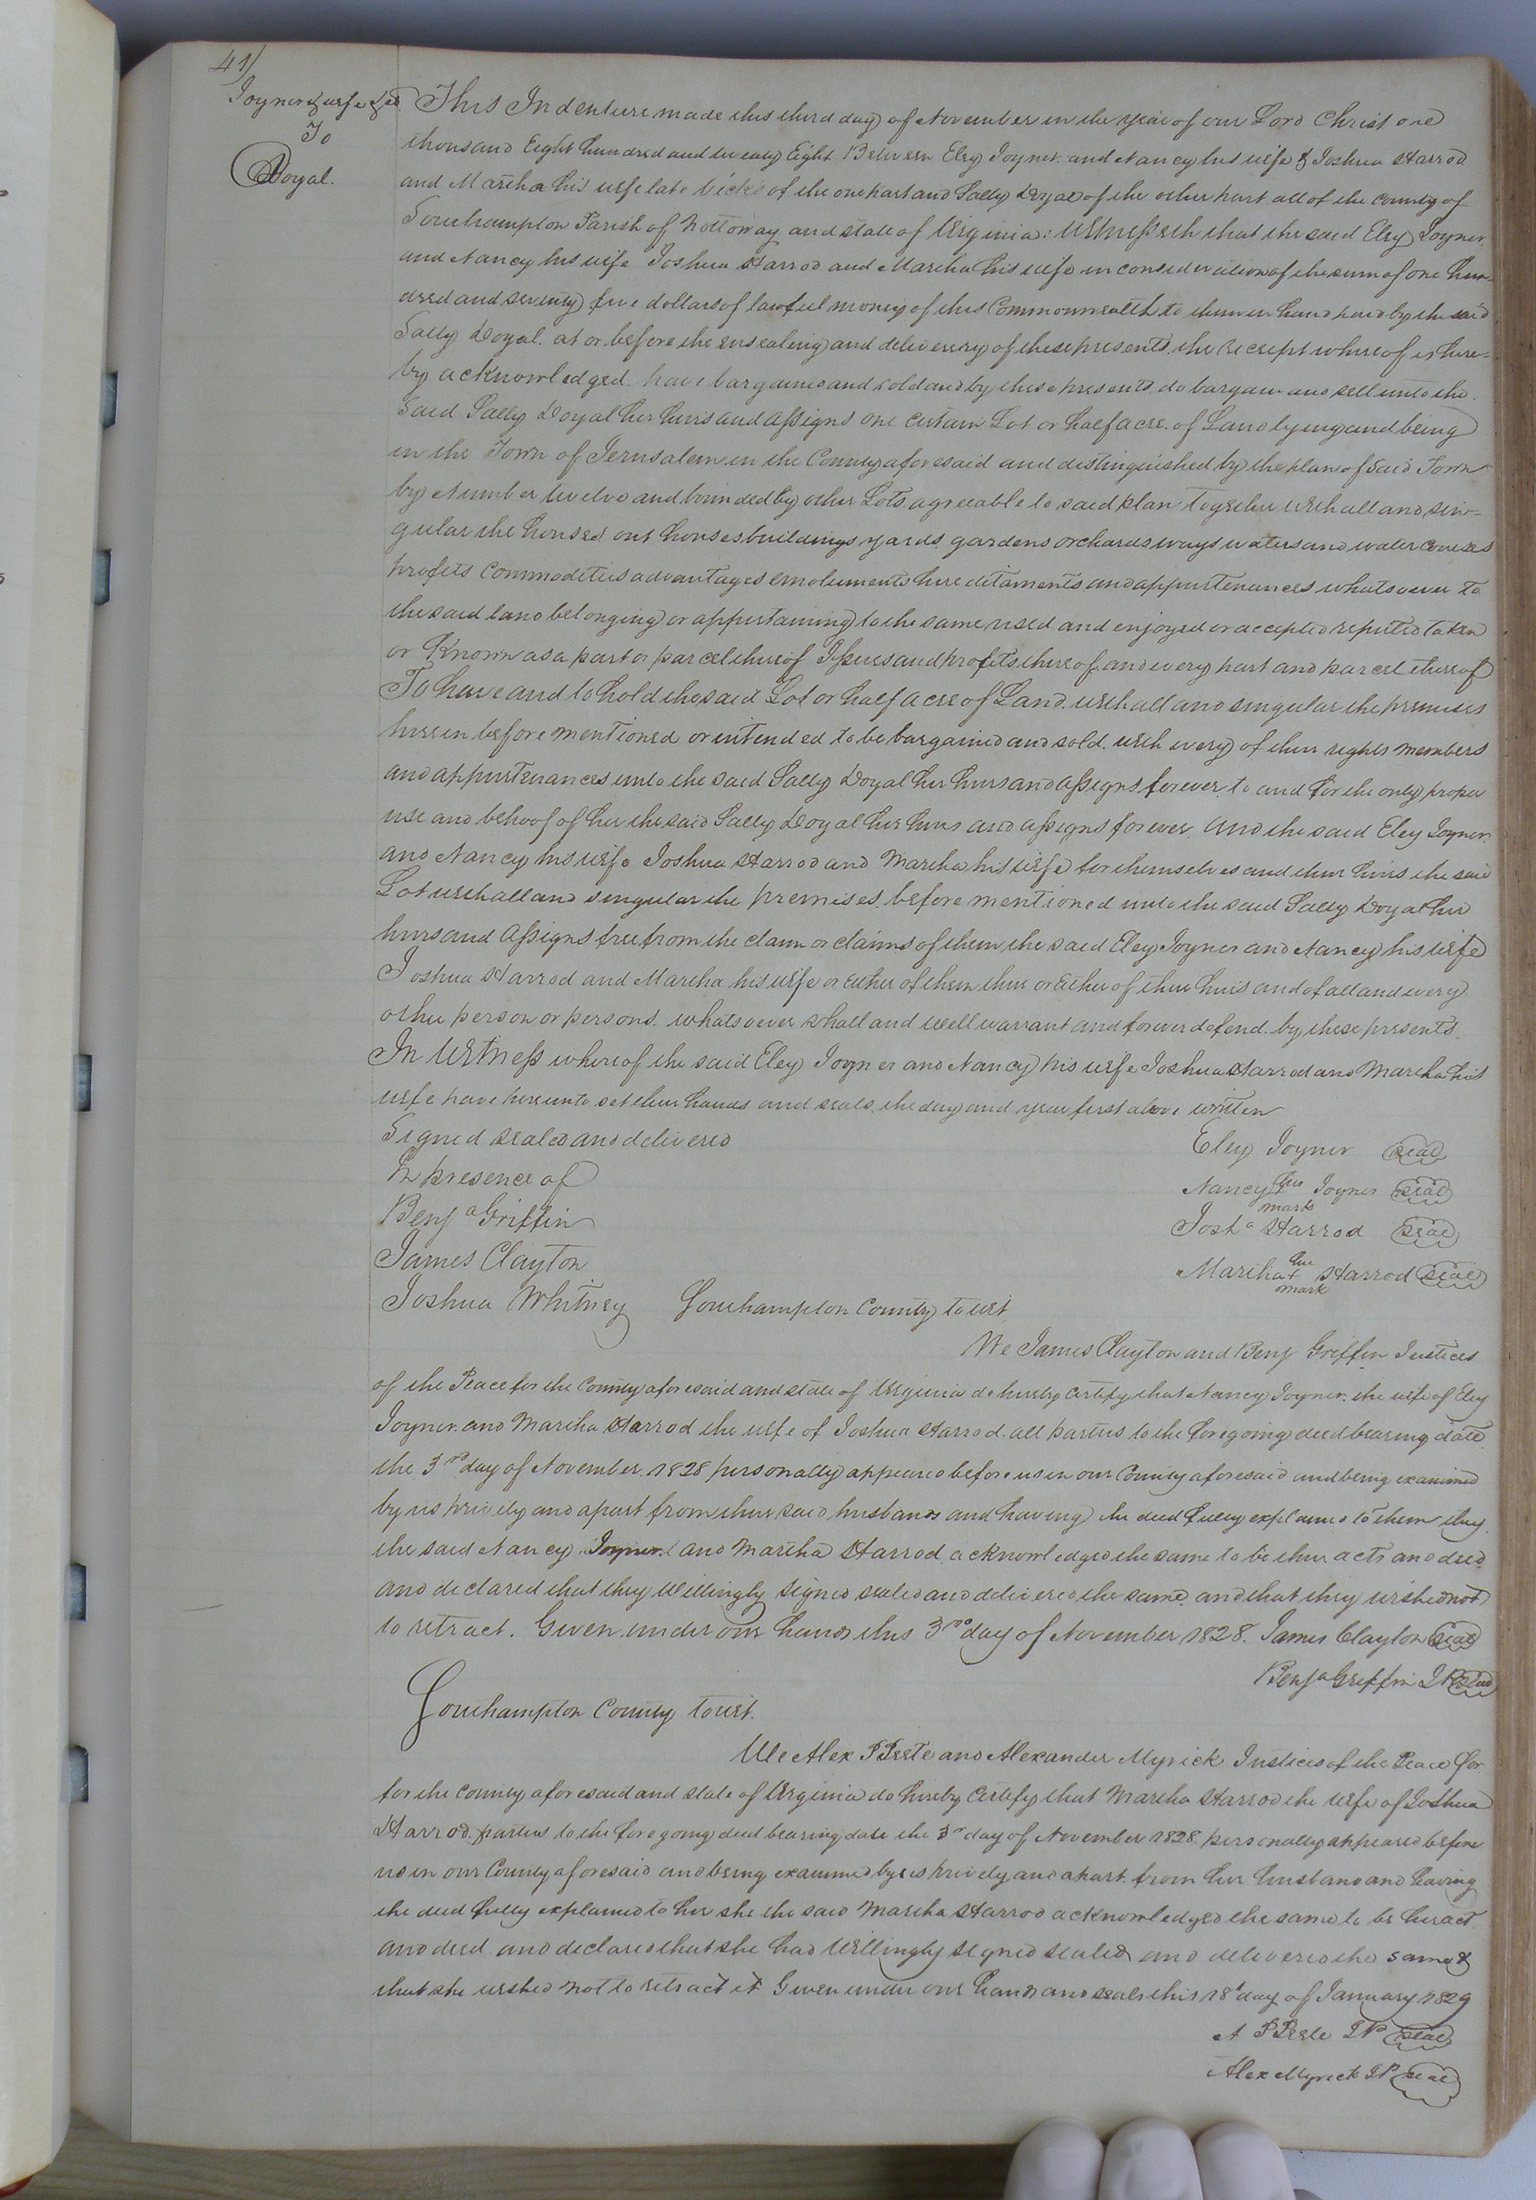 41/
Joyner & wife &al
To
Doyal.
This Indenture made this third day of November in the year of our Lord Christ one
thousand Eight hundred and twenty Eight Between Eley Joyner and Nancy his wife & Joshua Harrod
and Martha his wife late Vicks of the one part and Sally Doyal of the other part all of the County of
Southampton Parish of Nottoway and state of Virginia: Witnesseth that the said Eley Joyner
and Nancy his wife Joshua Harrod and Martha his wife in consideration of the sum of one hun-
dred and seventy five dollars of lawful money of this Commonwealth to them in hand paid by the said
Sally Doyal. at or before the ensealing and delivery of these presents, the receipt whereof is here-
by acknowledged. have bargained and sold and by these presents do bargain and sell unto the
said Sally Doyal her heirs and assigns one certain Lot or half acre of Land lying and being
in the Town of Jerusalem in the County aforesaid and distinguished by the plan of said Town
by Number twelve and bounded by other Lots agreeable to said plan together with all and sin-
gular the houses out houses buildings yards gardens orchards ways waters and water courses
profits commodities advantages emoluments hereditaments and appurtenances whatsoever to
the said land belonging or appertaining to the same used and enjoyed or accepted reputed taken
or Known as a part or parcel thereof Issues and profits thereof and every part and parcel thereof
To have and to hold the said Lot or half acre of Land with all and singular the premises
herein before mentioned or intended to be bargained and sold with every of their rights members
and appurtenances unto the said Sally Doyal her heirs and assigns forever to and for the only proper
use and behoof of her the said Sally Doyal her heirs and assigns forever and the said Eley Joyner
and Nancy his wife Joshua Harrod and Martha his wife for themselves and their heirs the said
Lot with all and singular the premises before mentioned unto the said Sally Doyal her
heirs and assigns free from the claim or claims of them the said Eley Joyner and Nancy his wife
Joshua Harrod and Martha his wife or either of them their or either of their heirs and of all and every
other person or persons whatsoever shall and will warrant and forever defend by these presents.
In Witness whereof the said Eley Joyner and Nancy his wife Joshua Harrod and Martha his
wife have hereunto set their hands and seals the day and year first above written
Signed sealed and delivered
In presence of
Benja Griffin
James Clayton
Joshua Whitney
Eley Joyner seal
Nancy her + mark Joyner seal
Josha Harrod seal
Martha her + mark Harrod seal
Southampton County to wit
We James Clayton and Benj Griffin Justices
of the Peace for the County aforesaid and state of Virginia do hereby certify that Nancy Joyner the wife of Eley
Joyner and Martha Harrod the wife of Joshua Harrod all parties to the foregoing deed bearing date
the 3rd day of November 1828 personally appeared before us in our County aforesaid and being examined
by us privily and apart from their said husbands and having the deed fully explained to them they
the said Nancy Joyner and Martha Harrod acknowledged the same to be their acts and deed
and declared that they willingly signed sealed and delivered the same and that they wished not
to retract. Given under our hands this 3rd day of November 1828. James Clayton seal
Benja Griffin JP seal
Southampton County to wit.
We Alex P Peete and Alexander Myrick Justices of the Peace for
for the County aforesaid and state of Virginia do hereby certify that Martha Harrod the wife of Joshua
Harrod parties to the foregoing deed bearing date the 3rd day of November 1828 personally appeared before
us in our County aforesaid and being examined by us privily and apart from her husband and having
the deed fully explained to her she the said Martha Harrod acknowledged the same to be her act
and deed and declared that she had willingly signed sealed and delivered the same &
that she wished not to retract it Given under our hands and seals this 18t day of January 1829
A P Peete JP seal
Alex Myrick JP seal